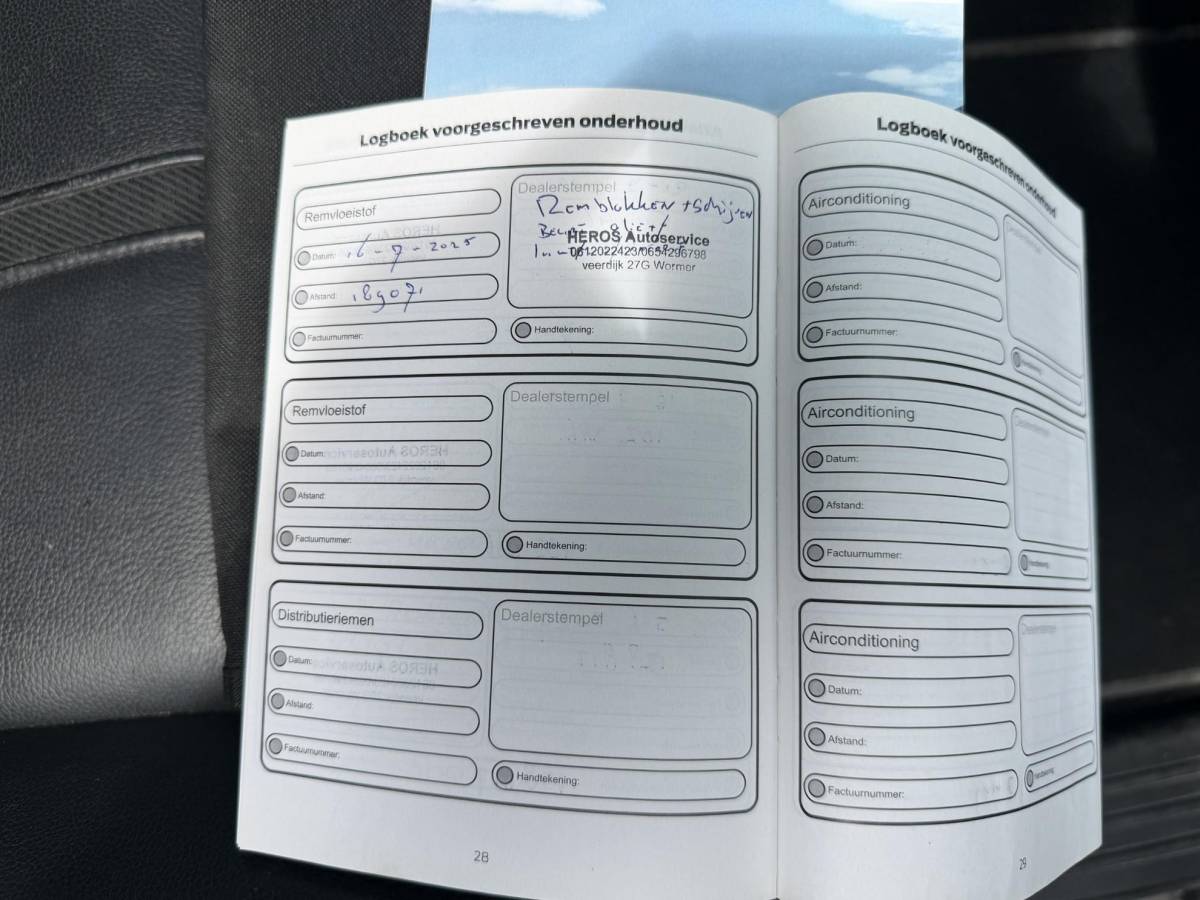 Logboek voorgeschreven onderhoud
Remvloeistof
Datum: 16-7-2025
Afstand: 189071
Factuurnummer:
Dealerstempel
Remblokken + schijven
HEROS Autoservice
0612022423/0654296798
veerdijk 27G Wormer
Handtekening:
Remvloeistof
Datum:
Afstand:
Factuurnummer:
Dealerstempel
Handtekening:
Distributieriemen
Datum:
Afstand:
Factuurnummer:
Dealerstempel
Handtekening:
28
Logboek voorgeschreven onderhoud
Airconditioning
Datum:
Afstand:
Factuurnummer:
Dealerstempel
Handtekening:
Airconditioning
Datum:
Afstand:
Factuurnummer:
Dealerstempel
Handtekening:
Airconditioning
Datum:
Afstand:
Factuurnummer:
Dealerstempel
Handtekening:
29